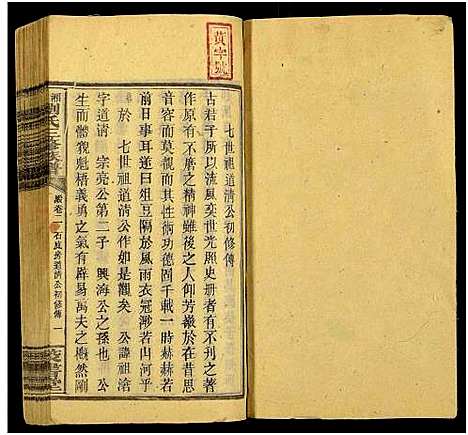 黃字號
七世祖道清公初修傳
古君子所以流風奕世光照史冊者有不刊之著
作原有不磨之精神雖後之人仰芳徽於在昔思
音容而莫覿而其性術功德固千載一時赫赫若
前日事耳逆曰俎豆隔於風雨衣冠渺若山河乎
於 七世祖道清公作如是觀矣 公諱祖滄
字道清 宗亮公第二子 興海公之孫也 公
生而體貌魁梧義勇之氣有辟易萬夫之概然剛
三修族譜
卷二 石庭房道清公初修傳 一